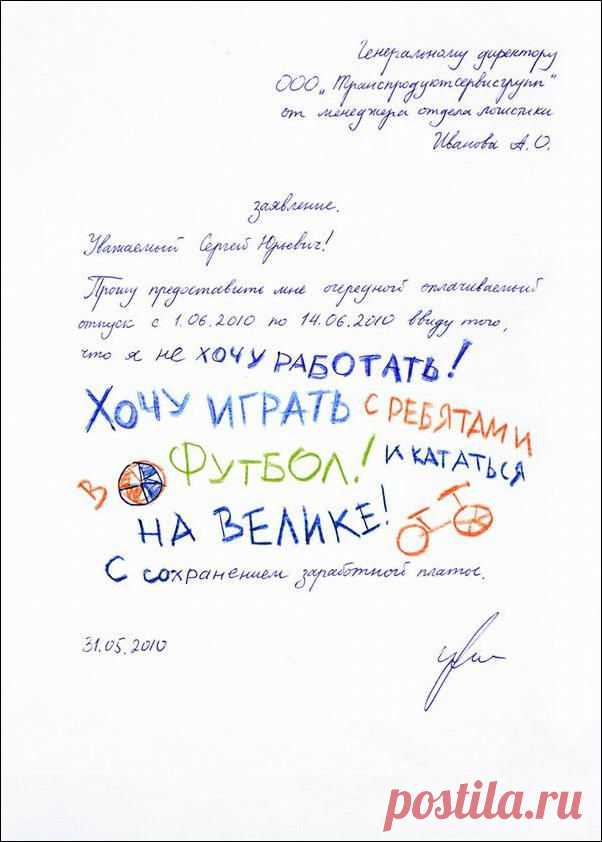 Генеральному директору
ООО „Транспродуктсервисгрупп"
от менеджера отдела логистики
Иванова А.О.
заявление.
Уважаемый Сергей Юрьевич!
Прошу предоставить мне очередной оплачиваемый
отпуск с 1.06.2010 по 14.06.2010 ввиду того,
что я не хочу РАБОТАТЬ!
ХОЧУ ИГРАТЬ С РЕБЯТАМИ
В ФУТБОЛ! И КАТАТЬСЯ
НА ВЕЛИКЕ!
С сохранением заработной платы.
31.05.2010
postila.ru